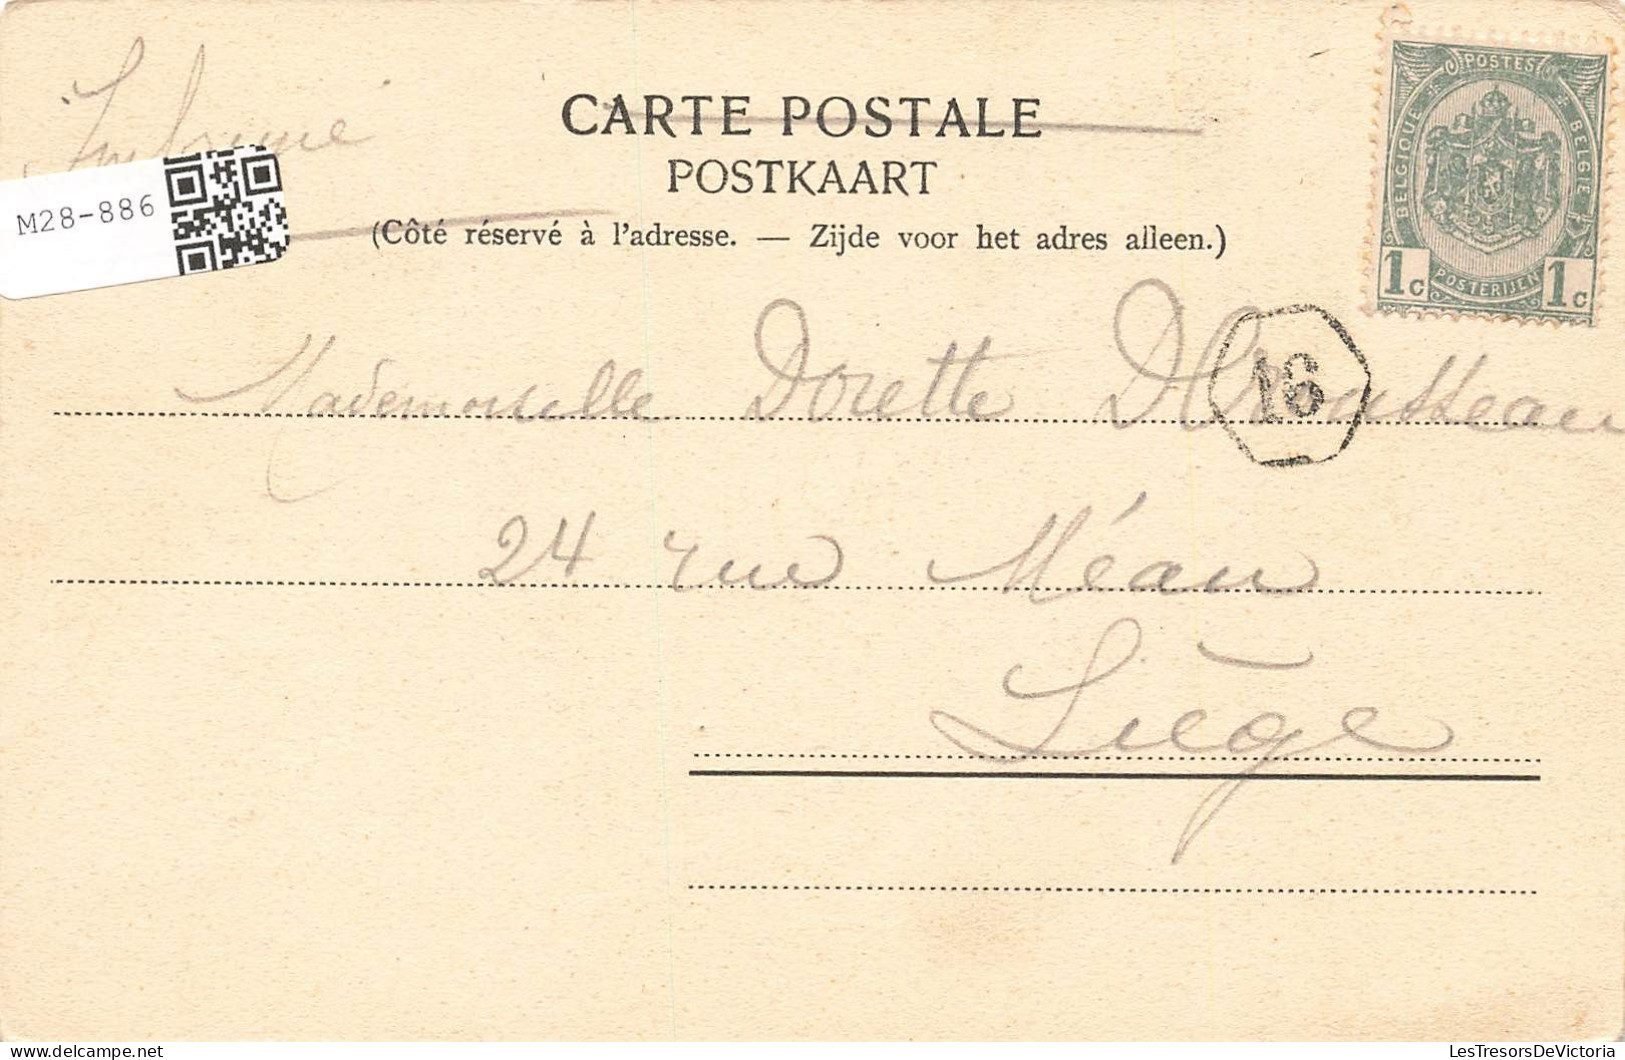 Imprimé
CARTE POSTALE
POSTKAART
(Côté réservé à l'adresse. — Zijde voor het adres alleen.)
M28-886
POSTES
BELGIQUE
BELGIE
1c
POSTERIJEN
1c
16
Mademoiselle Dorette
24 rue Méan
Liège
LesTresorsDeVictoria